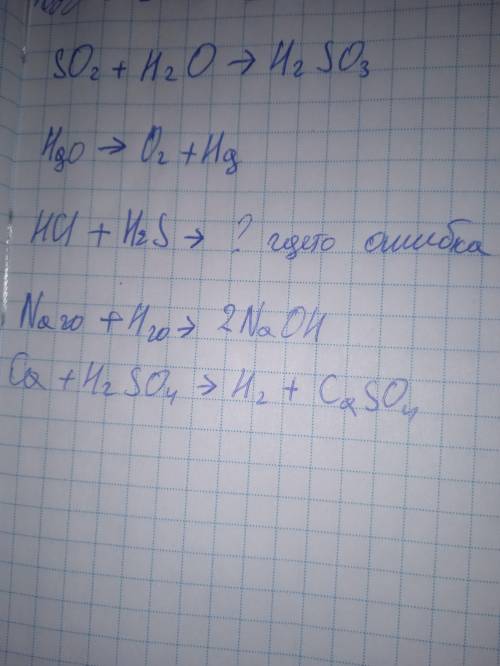 SO₂ + H₂O → H₂SO₃
HgO → O₂ + Hg
HCl + H₂S → ? гдето ошибка
Na₂O + H₂O → 2NaOH
Ca + H₂SO₄ → H₂ + CaSO₄